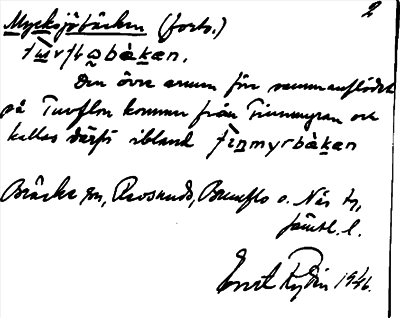 2
Mycksjöbäcken (forts.)
Den övre armen före sammanflödet
på Turflon kommer från Finnmyran och
kallas därför ibland finmyrbäkan
Bräcke sn, Revsunds, Brunflo o. Näs tg,
Jämtl. l.
Ernst Rydin 1946.